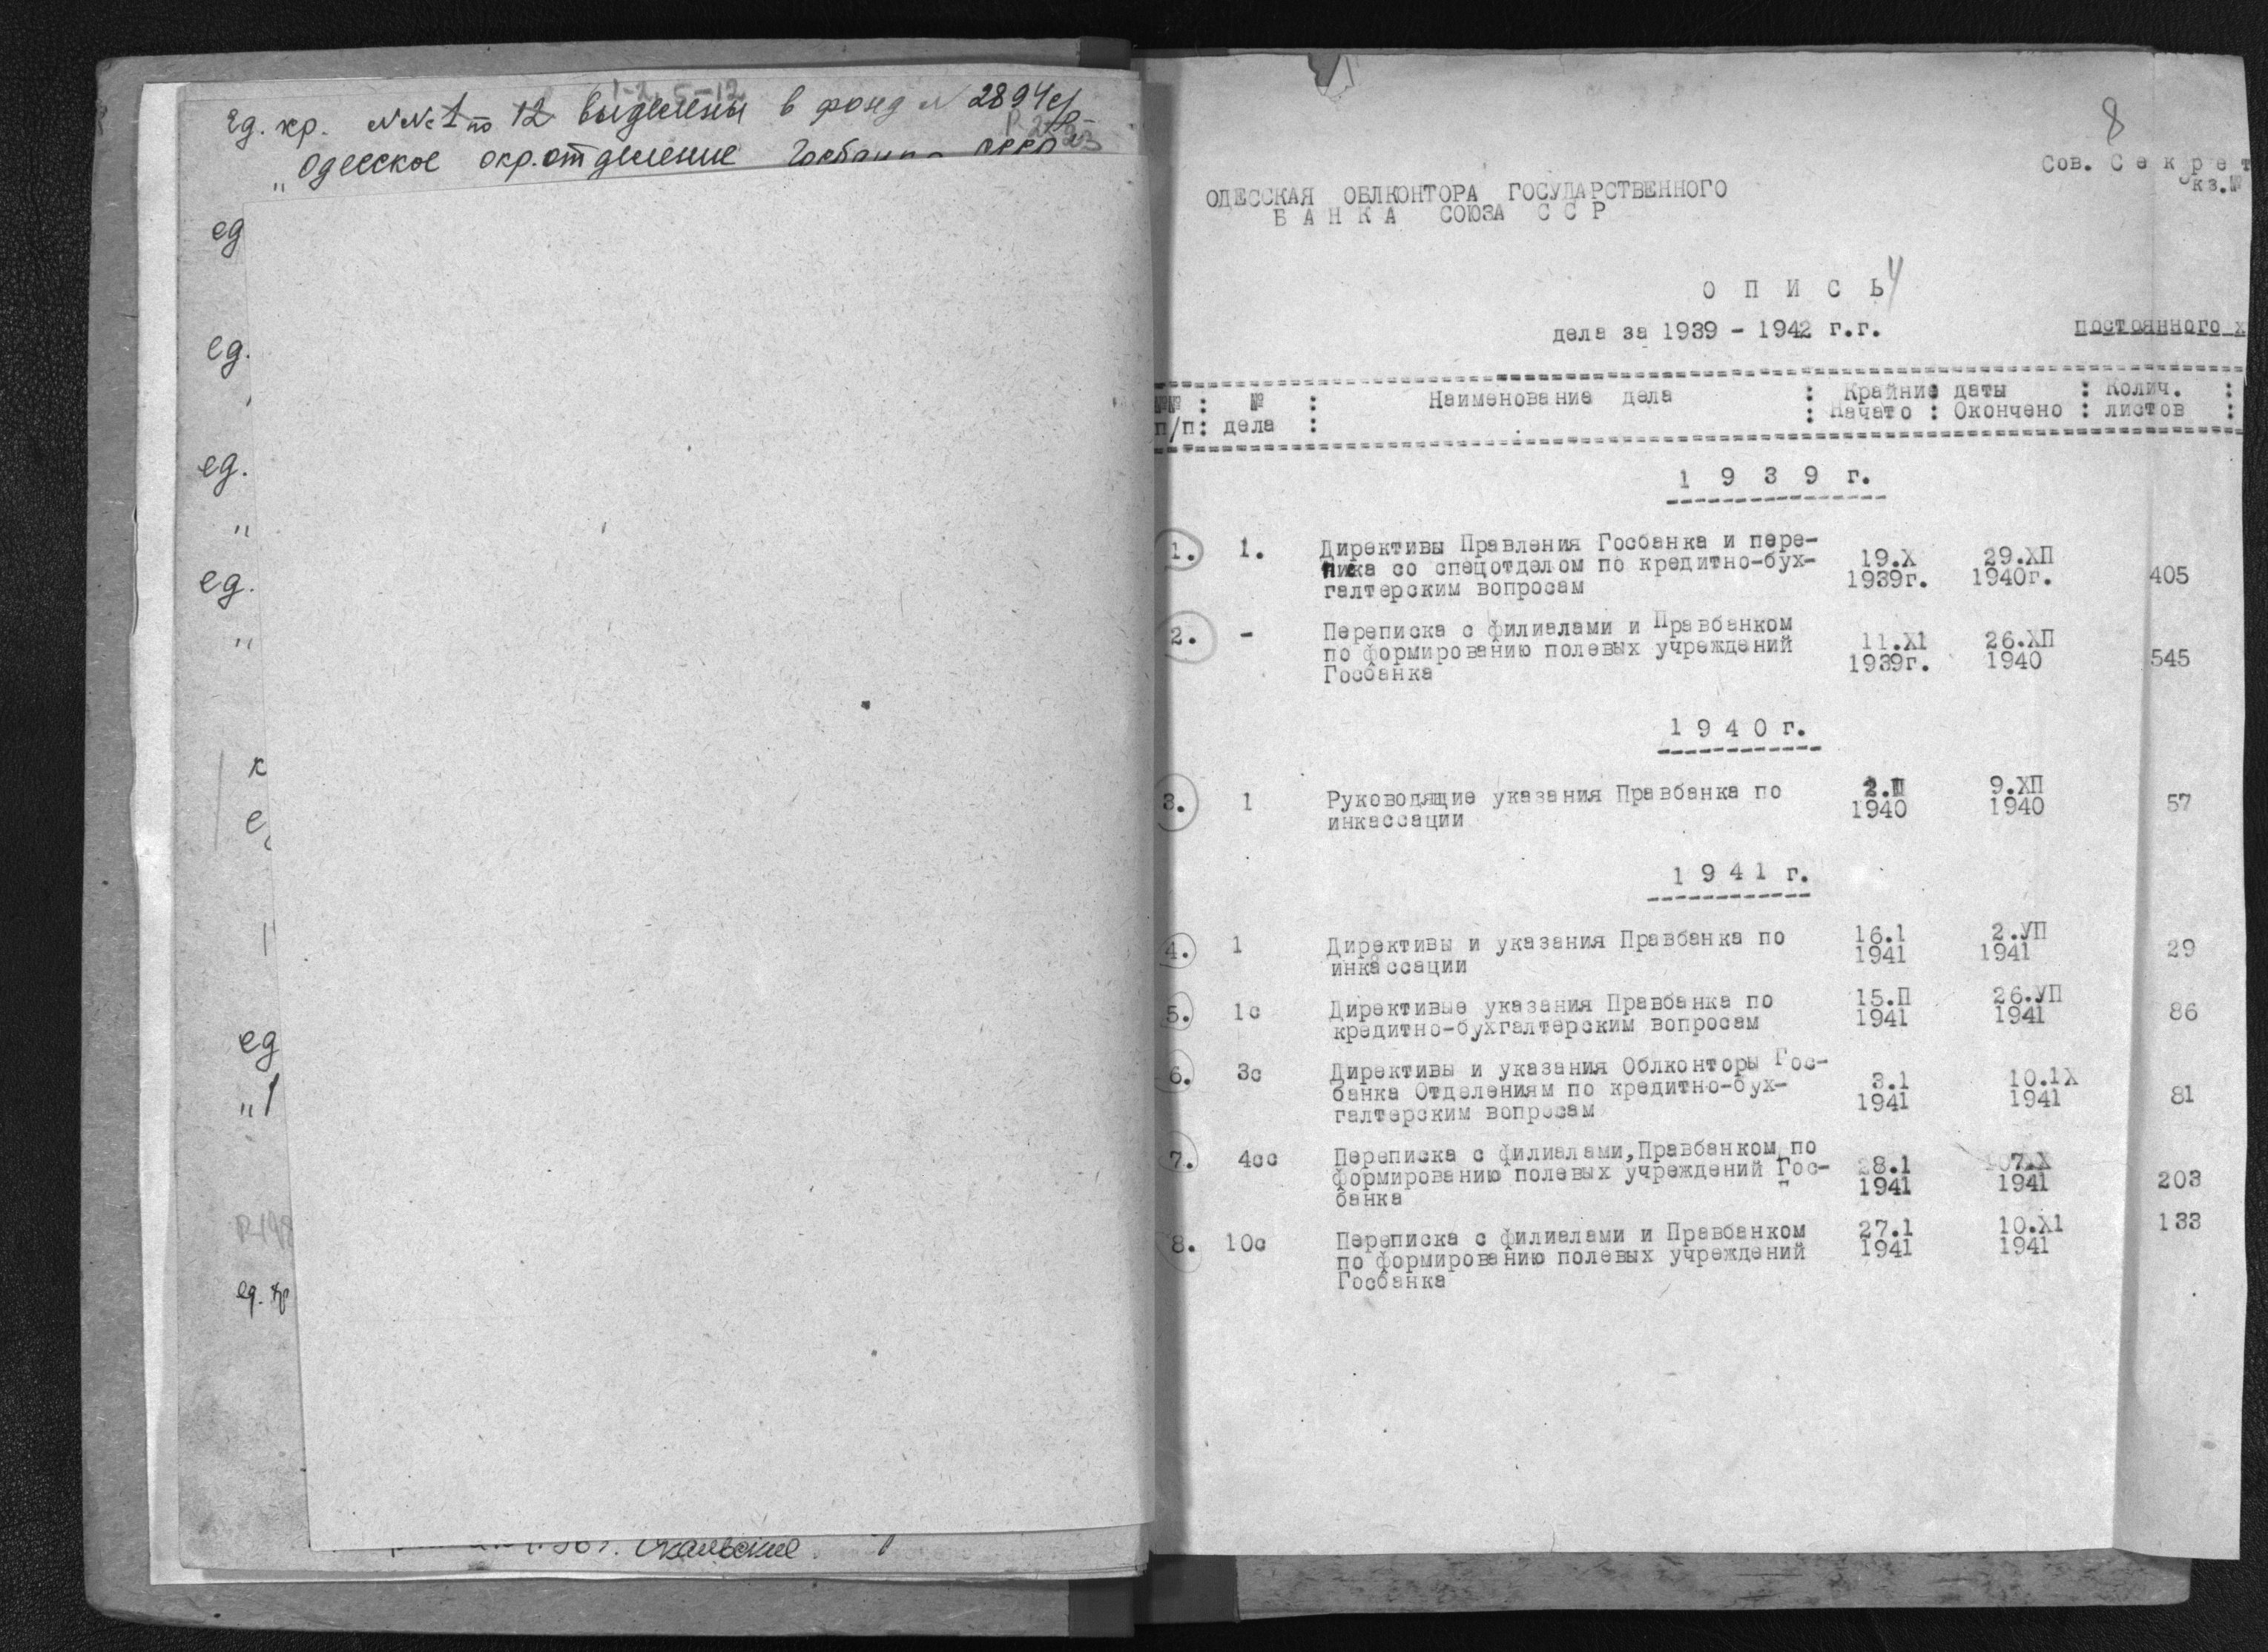 1-2, 5-12
Ед. хр. №№ 1 по 12 выделены в фонд № 2894
Одесское окр. отделение
ед
ед.
ед.
"
ед.
"
к
ед
"1
ед. хр
8
Сов. Секрет
кз.№
ОДЕССКАЯ ОБЛКОНТОРА ГОСУДАРСТВЕННОГО
БАНКА СОЮЗА ССР
ОПИСЬ 4
дела за 1939 - 1942 г.г.
постоянного х
№№ : № : Наименование дела : Крайние даты : Колич. :
п/п: дела : : Начато : Окончено : листов :
1939 г.
1. 1. Директивы Правления Госбанка и пере-
писка со спецотделом по кредитно-бух- 19.X 29.ХП
галтерским вопросам 1939г. 1940г. 405
2. - Переписка с филиалами и Правбанком
по формированию полевых учреждений 11.X1 26.ХП
Госбанка 1939г. 1940 545
1940г.
3. 1 Руководящие указания Правбанка по 2.Ш 9.ХП
инкассации 1940 1940 57
1941 г.
4. 1 Директивы и указания Правбанка по 16.1 2.УП
инкассации 1941 1941 29
5. 1с Директивые указания Правбанка по 15.П 26.УП
кредитно-бухгалтерским вопросам 1941 1941 86
6. 3с Директивы и указания Облконторы Гос-
банка Отделениям по кредитно-бух- 3.1 10.1X
галтерским вопросам 1941 1941 81
7. 4сс Переписка с филиалами,Правбанком по
формированию полевых учреждений Гос- 28.1 7.X
банка 1941 1941 203
8. 10с Переписка с филиалами и Правбанком 27.1 10.X1 133
по формированию полевых учреждений 1941 1941
Госбанка